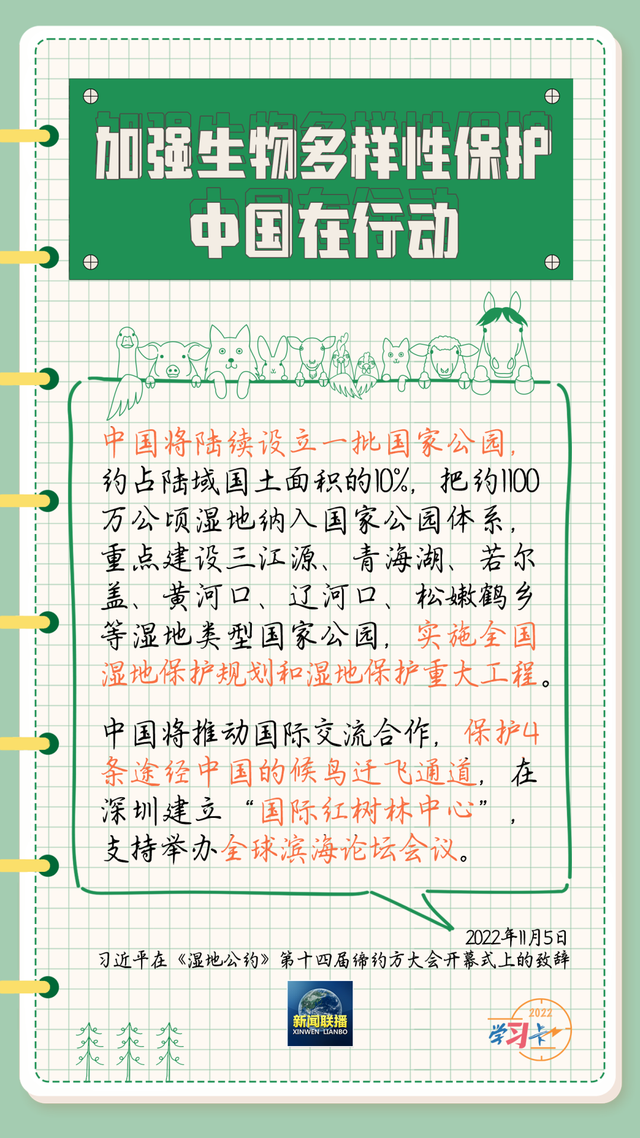 加强生物多样性保护
中国在行动
中国将陆续设立一批国家公园，
约占陆域国土面积的10%，把约1100
万公顷湿地纳入国家公园体系，
重点建设三江源、青海湖、若尔
盖、黄河口、辽河口、松嫩鹤乡
等湿地类型国家公园，实施全国
湿地保护规划和湿地保护重大工程。
中国将推动国际交流合作，保护4
条途经中国的候鸟迁飞通道，在
深圳建立“国际红树林中心”，
支持举办全球滨海论坛会议。
2022年11月5日
习近平在《湿地公约》第十四届缔约方大会开幕式上的致辞
新闻联播
XINWEN LIANBO
2022
学习卡